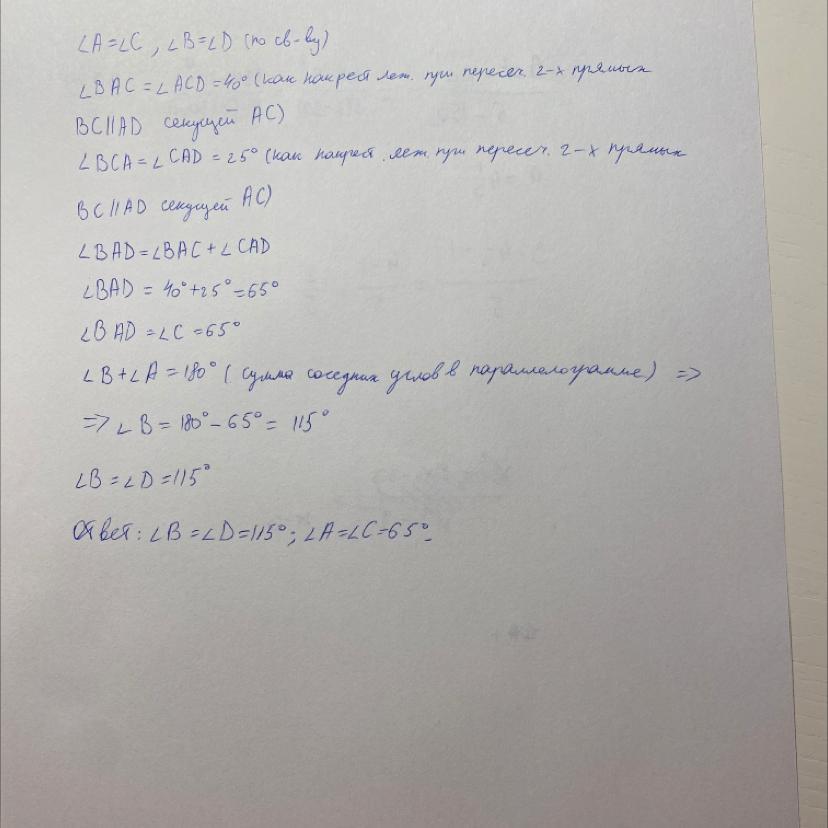 ∠A=∠C, ∠B=∠D (по св-ву)
∠BAC=∠ACD=40° (как накрест леж. при пересеч. 2-х прямых
BC||AD секущей AC)
∠BCA=∠CAD=25° (как накрест. леж. при пересеч. 2-х прямых
BC||AD секущей AC)
∠BAD=∠BAC+∠CAD
∠BAD=40°+25°=65°
∠BAD=∠C=65°
∠B+∠A=180° (сумма соседних углов в параллелограмме) =>
=> ∠B=180°-65°=115°
∠B=∠D=115°
Ответ: ∠B=∠D=115°; ∠A=∠C=65°.